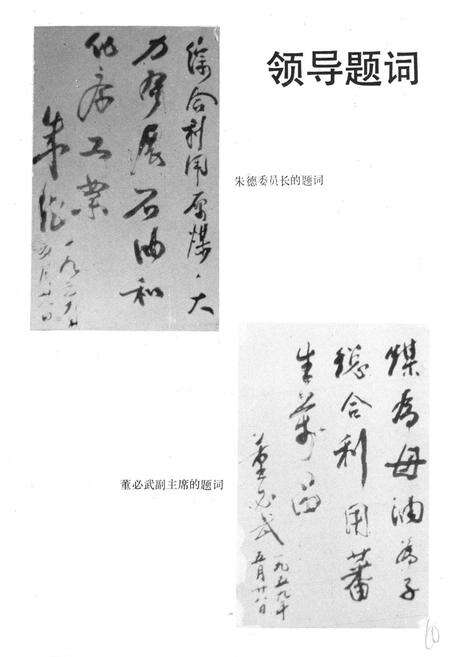 领导题词
综合利用原煤，大
力发展石油和
化学工业
朱德
朱德委员长的题词
煤为母油为子
综合利用蕃
生万品
董必武
一九五九年
五月廿八日
董必武副主席的题词